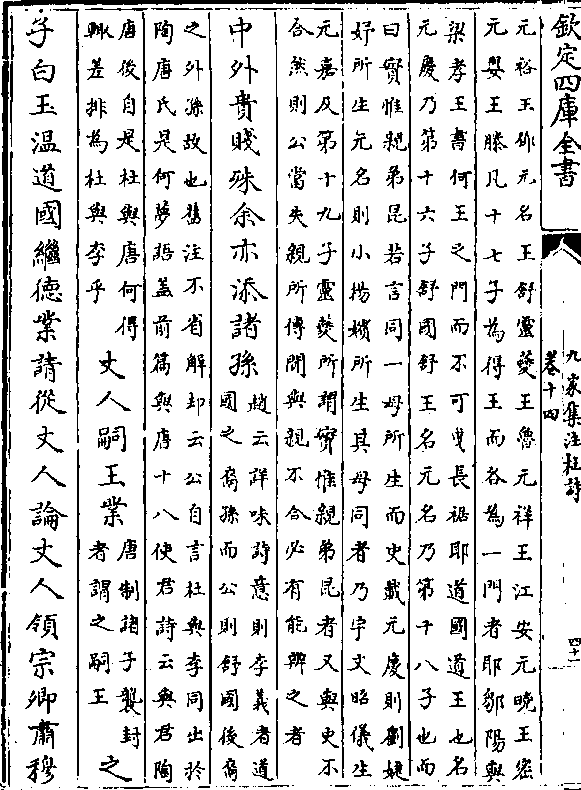 欽定四庫全書
九家集注杜詩
卷十四
四十一
元裕王鄧元名王舒靈夔王魯元祥王江安元曉王密
元嬰王滕凡十七子為得王而各為一門者耶鄒陽與
梁孝王書何王之門而不可曵長裾耶道國道王也名
元慶乃第十六子舒國舒王名元名乃第十八子也而
曰實惟親弟昆若言同一母所生而史載元慶則劉婕
妤所生元名則小楊嬪所生其母同者乃宇文昭儀生
元嘉及第十九子靈夔所謂實惟親弟昆者又與史不
合然則公當失親所傳聞與親不合必有能辨之者
中外貴賤殊余亦忝諸孫
趙云詳味詩意則李義者道
國之裔孫而公則舒國後裔
之外孫故也舊注不省解却云公自言杜與李同出於
陶唐氏是何夢語盖前篇與唐十八使君詩云與君陶
唐後自是杜與唐何得
輙差排為杜與李乎
丈人嗣王業
唐制諸子襲封
者謂之嗣王
之
子白玉温道國繼德業請從丈人論丈人領宗卿肅穆